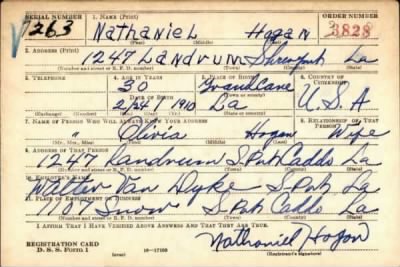 SERIAL NUMBER 1. NAME (Print) ORDER NUMBER
√263 Nathaniel Hogan 3828
(First) (Middle) (Last)
2. ADDRESS (Print)
1247 Landrum Shreveport La
(Number and street or R. F. D. number) (Town) (County) (State)
3. TELEPHONE 4. AGE IN YEARS 5. PLACE OF BIRTH 6. COUNTRY OF CITIZENSHIP
30 Grand Cane
DATE OF BIRTH
2/24/1910 La U.S.A
7. NAME OF PERSON WHO WILL ALWAYS KNOW YOUR ADDRESS 8. RELATIONSHIP OF THAT PERSON
" Olivia Hogan Wife
(Mr., Mrs., Miss) (First) (Middle) (Last)
9. ADDRESS OF THAT PERSON
1247 Landrum S. Port Caddo La
(Number and street or R. F. D. number) (Town) (County) (State)
10. EMPLOYER'S NAME
Walter Van Dyke S-Port La
11. PLACE OF EMPLOYMENT OR BUSINESS
1107 Snow S. Port Caddo La
(Number and street or R. F. D. number) (Town) (County) (State)
I AFFIRM THAT I HAVE VERIFIED ABOVE ANSWERS AND THAT THEY ARE TRUE.
REGISTRATION CARD
D. S. S. Form 1 16-17105 Nathaniel Hogan
(Registrant's signature)